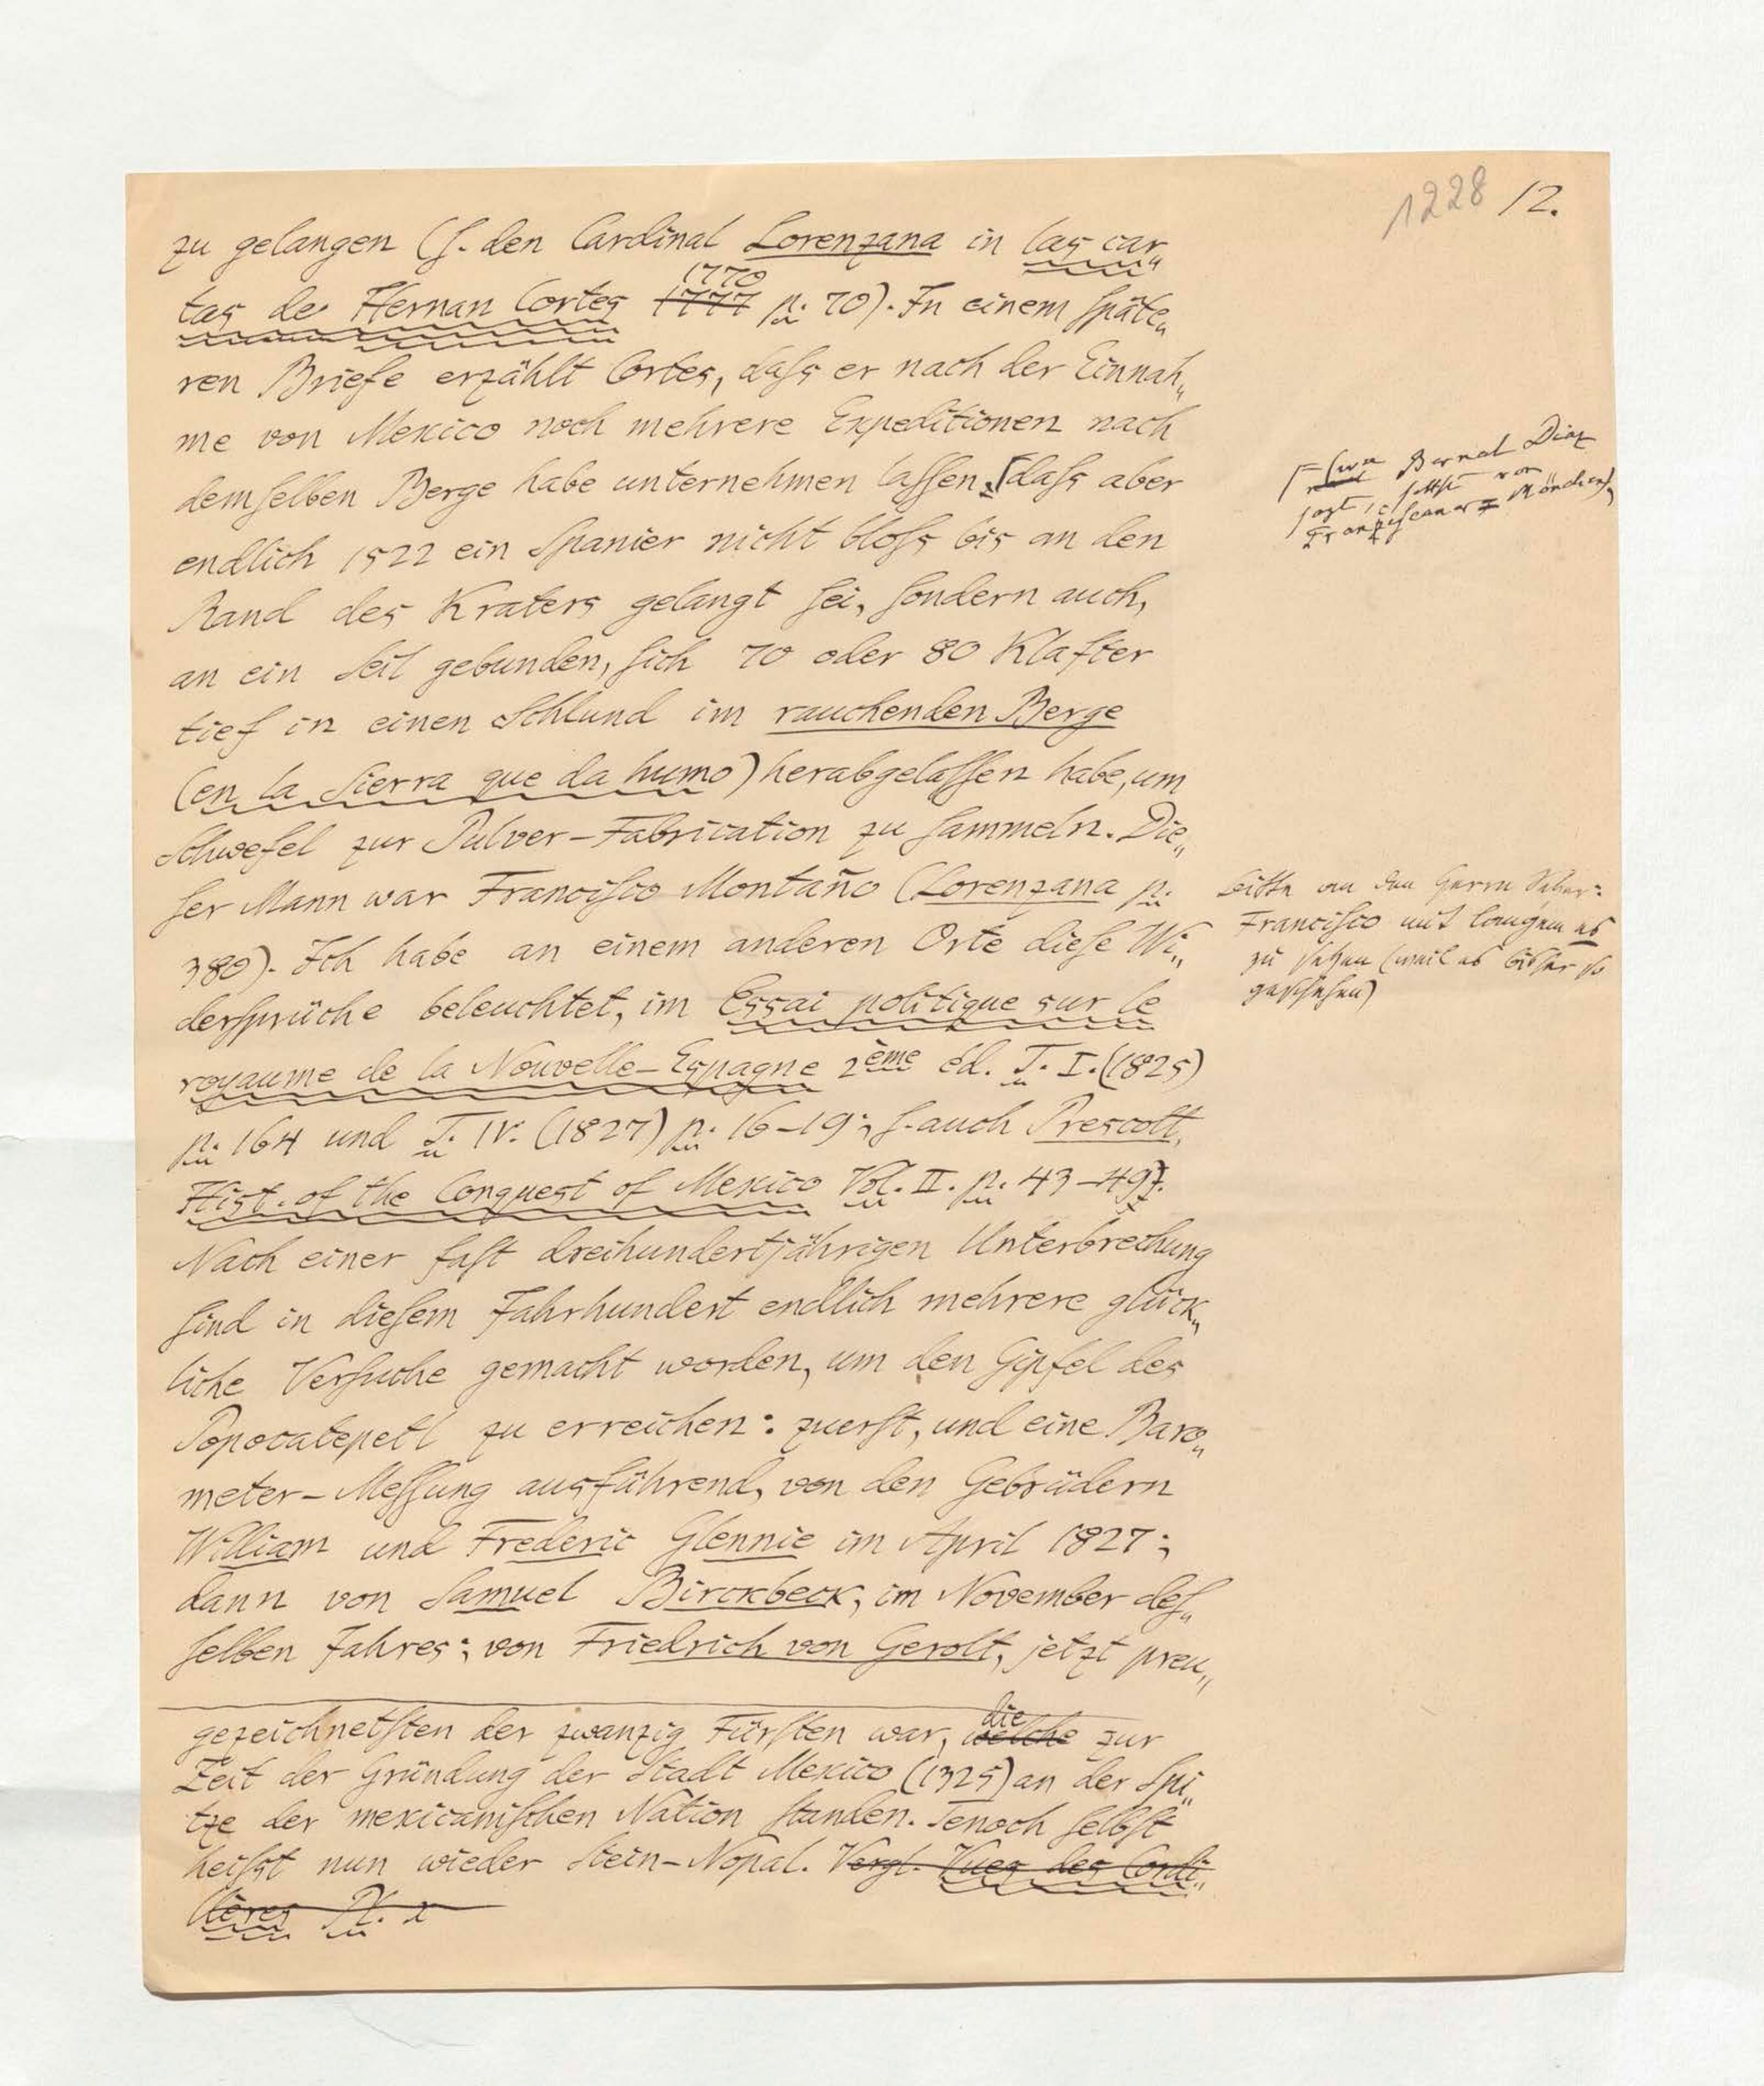 1228 12.
zu gelangen (ſ. den Cardinal Lorenzana in las car„
tas de Hernan Cortes 1777 1770 p. 70). In einem ſpäte„
ren Briefe erzählt Cortes, daſs er nach der Einnah„
me von Mexico noch mehrere Expeditionen nach
demſelben Berge habe unternehmen laſſen, ⌈daſs aber
endlich 1522 ein Spanier nicht bloſs bis an den
Rand des Kraters gelangt ſei, ſondern auch,
an ein Seil gebunden, ſich 70 oder 80 Klafter
tief in einen Schlund im rauchenden Berge
(en la Sierra que da humo) herabgelaſſen habe, um
Schwefel zur Pulver-Fabrication zu ſammeln. Die„
ſer Mann war Franciſco Montaño (Lorenzana p.
380). Ich habe an einem anderen Orte dieſe Wi„
derſprüche beleuchtet, im Essai politique sur le
royaume de la Nouvelle-Espagne 2ème éd. T. I. (1825)
p. 164 und T. IV. (1827) p. 16-19; ſ. auch Prescott,
Hist. of the Conquest of Mexico Vol. II. p. 43-49).
Nach einer faſt dreihundertjährigen Unterbrechung
ſind in dieſem Jahrhundert endlich mehrere glück„
liche Verſuche gemacht worden, um den Gipfel des
Popocatepetl zu erreichen: zuerſt, und eine Baro„
meter-Meſſung ausführend, von den Gebrüdern
William und Frederic Glennie im April 1827;
dann von Samuel Birckbeck, im November deſ„
ſelben Jahres; von Friedrich von Gerolt, jetzt preu„
gezeichnetſten der zwanzig Fürſten war, welche die zur
Zeit der Gründung der Stadt Mexico (1325) an der Spi„
tze der mexicaniſchen Nation ſtanden. Tenoch ſelbſt
heiſst nun wieder Stein-Nopal. Vergl. Vues des Cordi„
llères Pl. x
Bernal Diaz
ſagt, ſelbſt von
Franziſcaner Mönchen,
bitte an den Herrn Setzer:
Franciſco mit langem ſ
zu ſetzen (weil es bisher ſo
geſchehen)